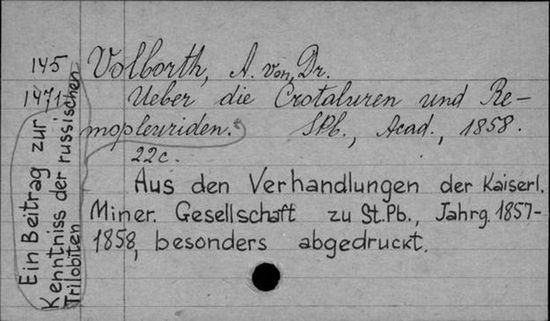 145 Volborth, A. von, Dr.
1471 Ueber die Crotaluren und Re-
mopleuriden. SPb., Acad., 1858.
22c.
Aus den Verhandlungen der Kaiserl.
Miner. Gesellschaft zu St.Pb., Jahrg. 1857-
1858, besonders abgedruckt.
Ein Beitrag zur
Kenntniss der russischen
Trilobiten